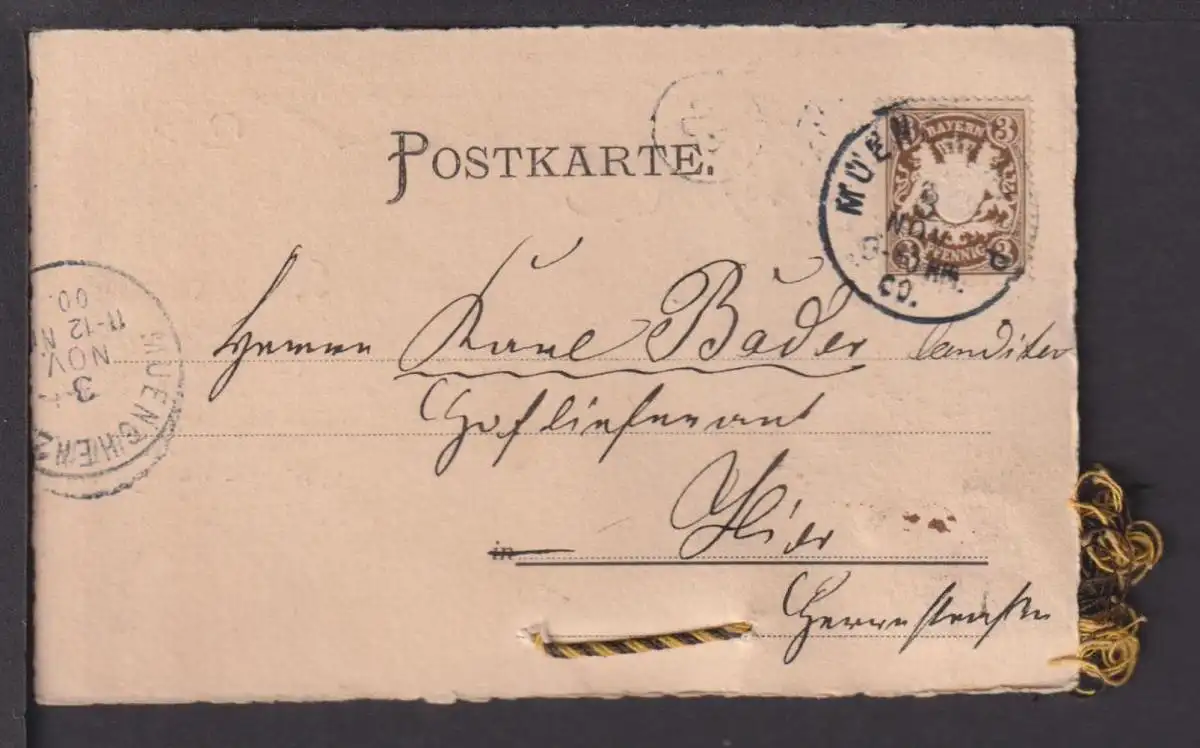 POSTKARTE.
BAYERN
3 3
3 3
PFENNIG
MUEN
3
NOV.
00.
MUENCHEN
3
NOV.
11-12 N
00.
Herrn Karl Bader Conditor
Hoflieferant
in Hier
Herrnstraße